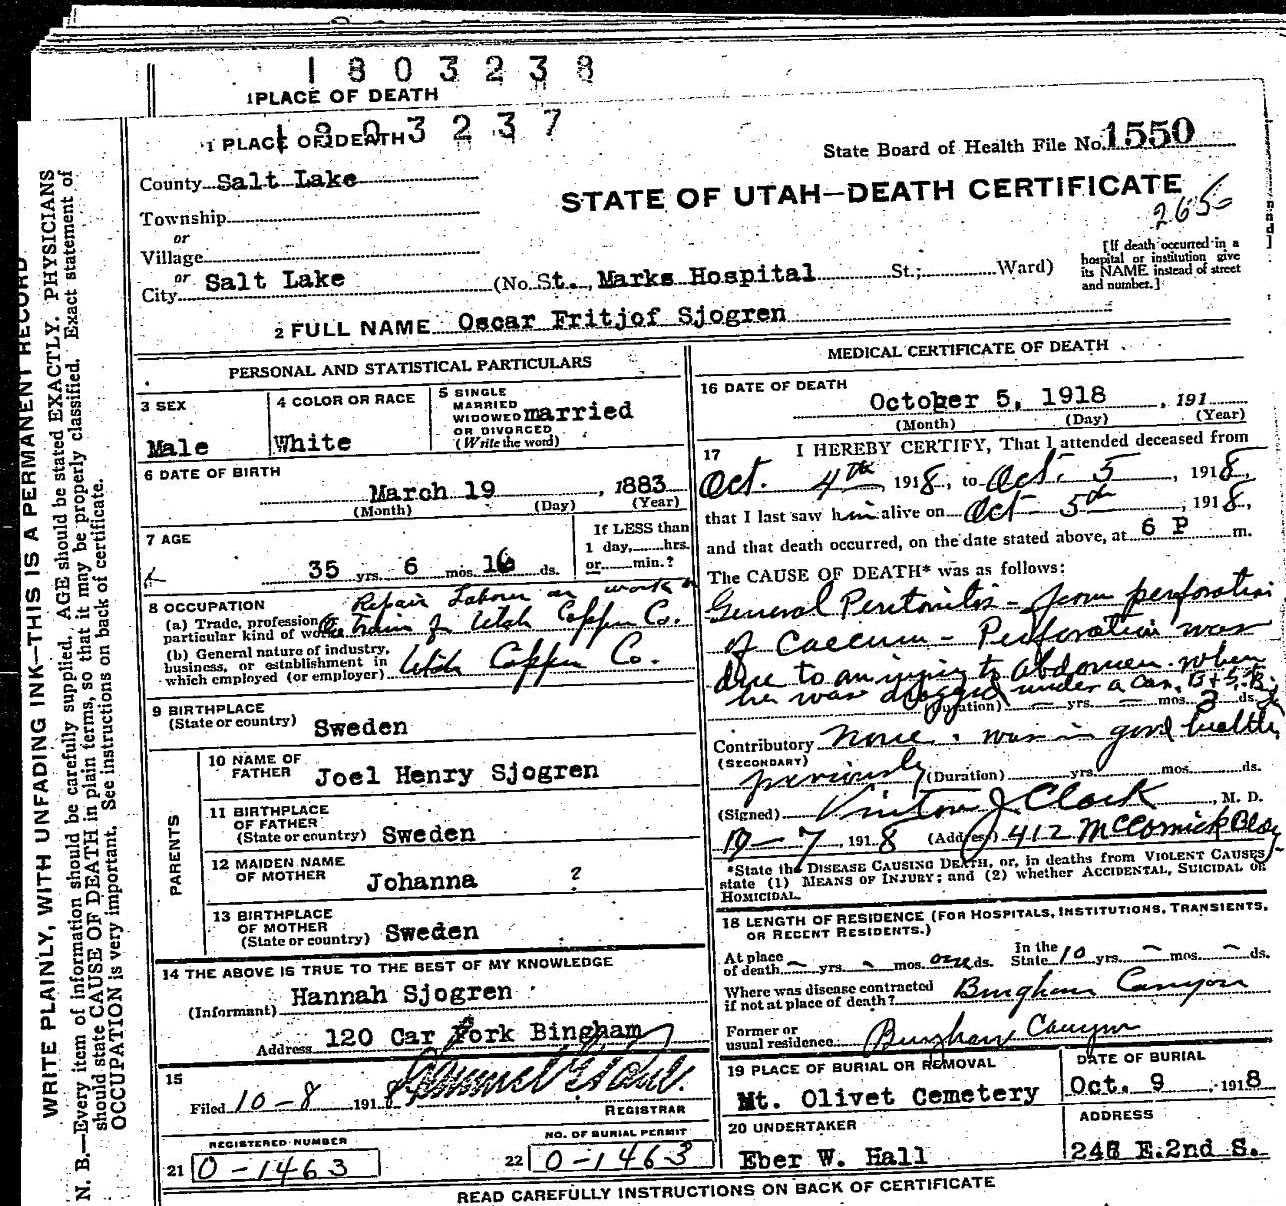 1803238
1 PLACE OF DEATH
1803237
1 PLACE OF DEATH
State Board of Health File No. 1550
County Salt Lake
STATE OF UTAH—DEATH CERTIFICATE
Township
or
Village
or
City Salt Lake (No. St., Marks Hospital St.; Ward)
[If death occurred in a
hospital or institution give
its NAME instead of street
and number.]
2 FULL NAME Oscar Fritjof Sjogren
PERSONAL AND STATISTICAL PARTICULARS
3 SEX
Male
4 COLOR OR RACE
White
5 SINGLE
MARRIED
WIDOWED married
OR DIVORCED
(Write the word)
6 DATE OF BIRTH
March 19, 1883
(Month) (Day) (Year)
7 AGE
35 yrs. 6 mos. 16 ds.
If LESS than
1 day, hrs.
or min.?
8 OCCUPATION Repair Laborer on work
(a) Trade, profession, or
particular kind of work train of Utah Copper Co.
(b) General nature of industry,
business, or establishment in
which employed (or employer) Utah Copper Co.
9 BIRTHPLACE
(State or country) Sweden
PARENTS
10 NAME OF
FATHER Joel Henry Sjogren
11 BIRTHPLACE
OF FATHER
(State or country) Sweden
12 MAIDEN NAME
OF MOTHER Johanna ?
13 BIRTHPLACE
OF MOTHER
(State or country) Sweden
14 THE ABOVE IS TRUE TO THE BEST OF MY KNOWLEDGE
(Informant) Hannah Sjogren
Address 120 Car Fork Bingham
15
Filed 10-8 1918
REGISTRAR
REGISTERED NUMBER
21 0-1463
NO. OF BURIAL PERMIT
22 0-1463
MEDICAL CERTIFICATE OF DEATH
16 DATE OF DEATH
October 5, 1918, 191
(Month) (Day) (Year)
17 I HEREBY CERTIFY, That I attended deceased from
Oct. 4th 1918, to Oct. 5, 1918,
that I last saw him alive on Oct 5th, 1918,
and that death occurred, on the date stated above, at 6 P m.
The CAUSE OF DEATH* was as follows:
General Peritonitis - from perforation
of Caecum - Perforation was
due to an injury to abdomen when
he was dragged under a car
(Duration) — yrs. — mos. 2 ds.
Contributory none. was in good health
(SECONDARY)
previously (Duration) yrs. mos. ds.
(Signed) Vinton J Clark, M. D.
10-7, 1918 (Address) 412 McCornick Bldg
*State the DISEASE CAUSING DEATH, or, in deaths from VIOLENT CAUSES
state (1) MEANS OF INJURY; and (2) whether ACCIDENTAL, SUICIDAL OR
HOMICIDAL.
18 LENGTH OF RESIDENCE (FOR HOSPITALS, INSTITUTIONS, TRANSIENTS,
OR RECENT RESIDENTS.)
At place
of death — yrs. - mos. one ds. In the
State 10 yrs. — mos. — ds.
Where was disease contracted
if not at place of death? Bingham Canyon
Former or
usual residence Bingham Canyon
19 PLACE OF BURIAL OR REMOVAL
Mt. Olivet Cemetery
DATE OF BURIAL
Oct. 9, 1918
20 UNDERTAKER
Eber W. Hall
ADDRESS
246 E. 2nd S.
READ CAREFULLY INSTRUCTIONS ON BACK OF CERTIFICATE
WRITE PLAINLY, WITH UNFADING INK—THIS IS A PERMANENT RECORD
N. B.—Every item of information should be carefully supplied. AGE should be stated EXACTLY. PHYSICIANS
should state CAUSE OF DEATH in plain terms, so that it may be properly classified. Exact statement of
OCCUPATION is very important. See instructions on back of certificate.